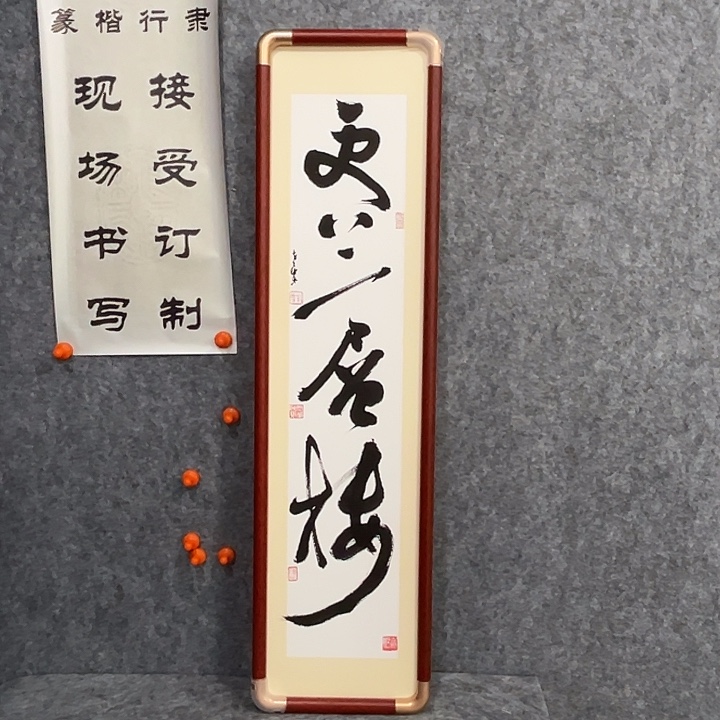 篆楷行隶
现场书写
接受订制
更上一层楼